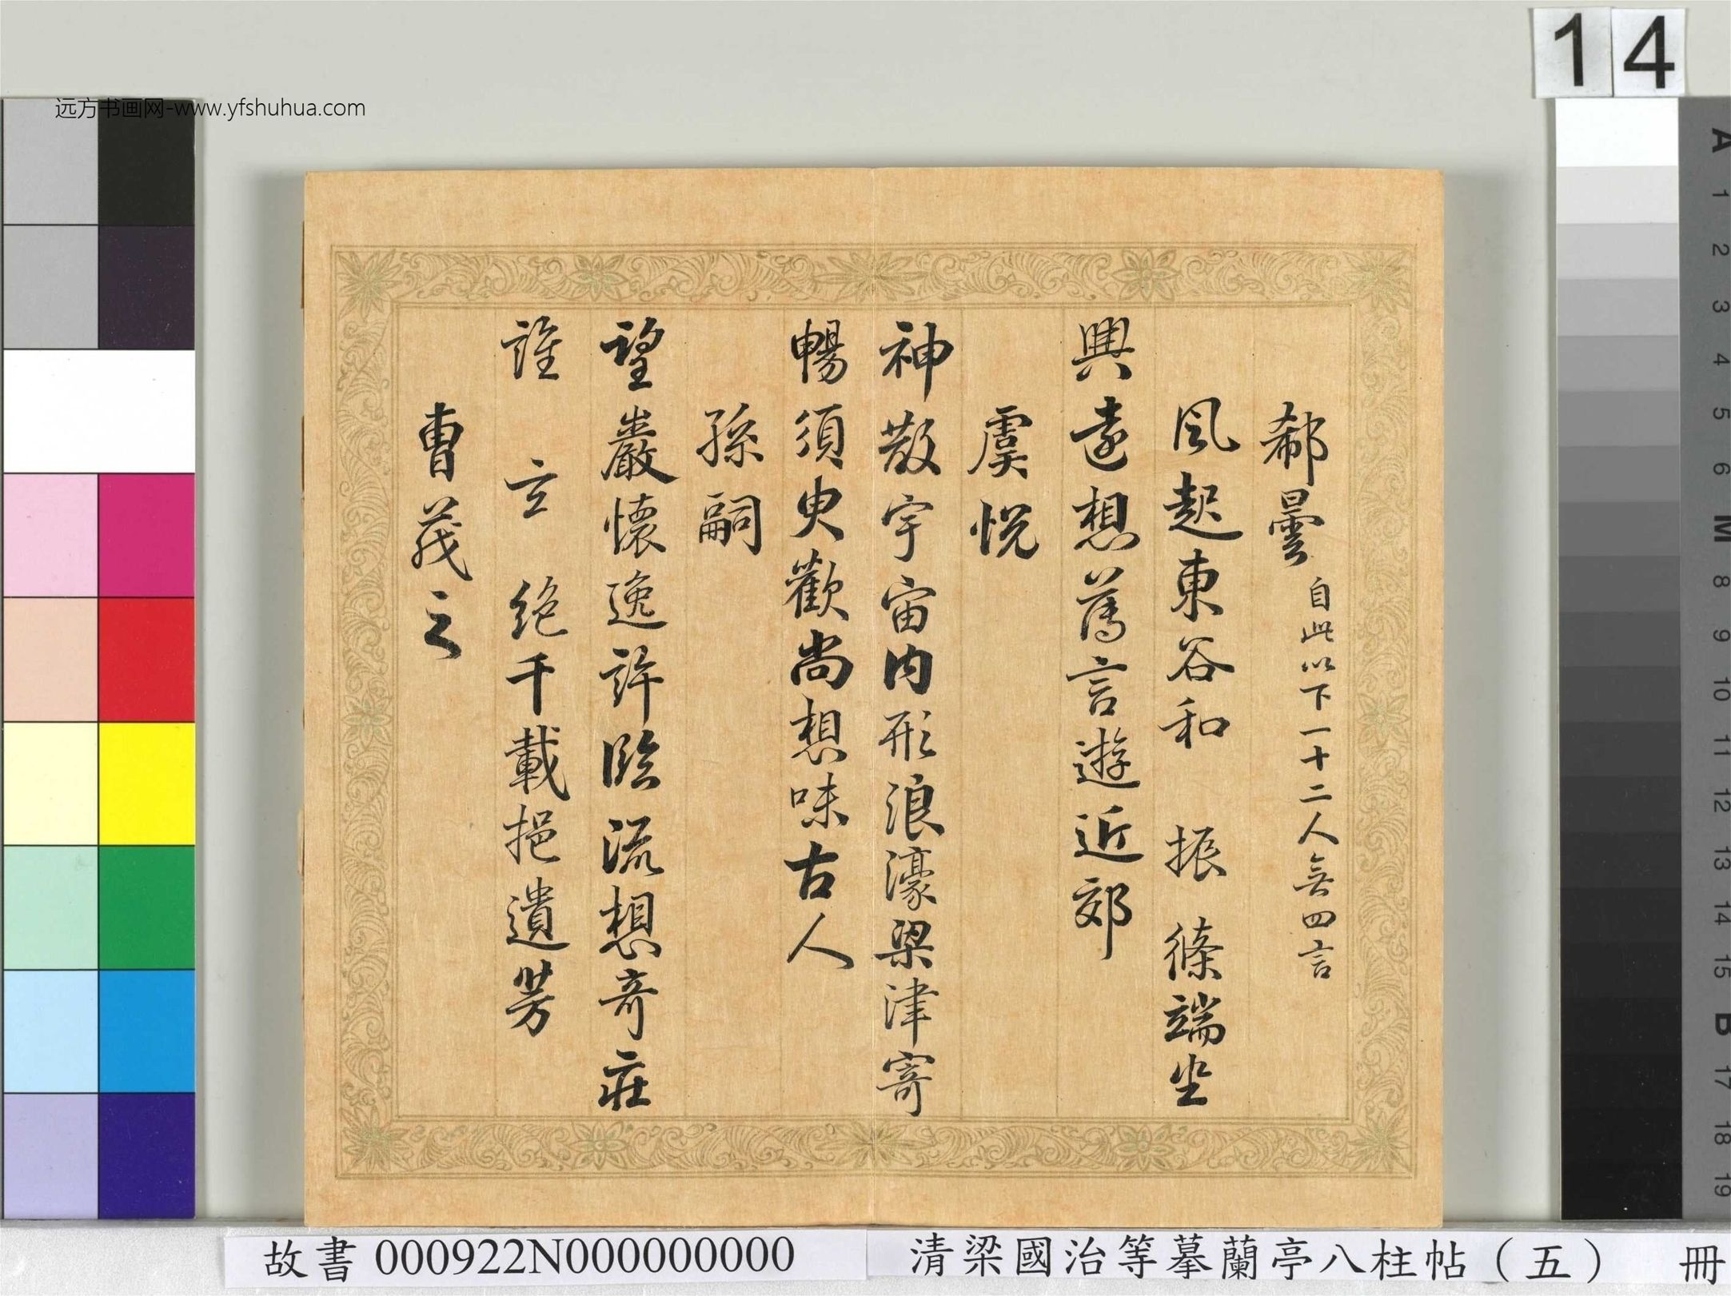 14
远方书画网-www.yfshuhua.com
郗曇 自此以下一十二人無四言
風起東谷和 振條端坐
興遠想薄言遊近郊
虞悅
神散宇宙內形浪濠梁津寄
暢須臾歡尚想味古人
孫嗣
望巖懷逸許臨流想奇莊
誰 言 絕千載挹遺芳
曹茂之
故書 000922N000000000
清梁國治等摹蘭亭八柱帖（五） 冊
A 1 2 3 4 5 6 M 8 9 10 11 12 13 14 15 B 17 18 19